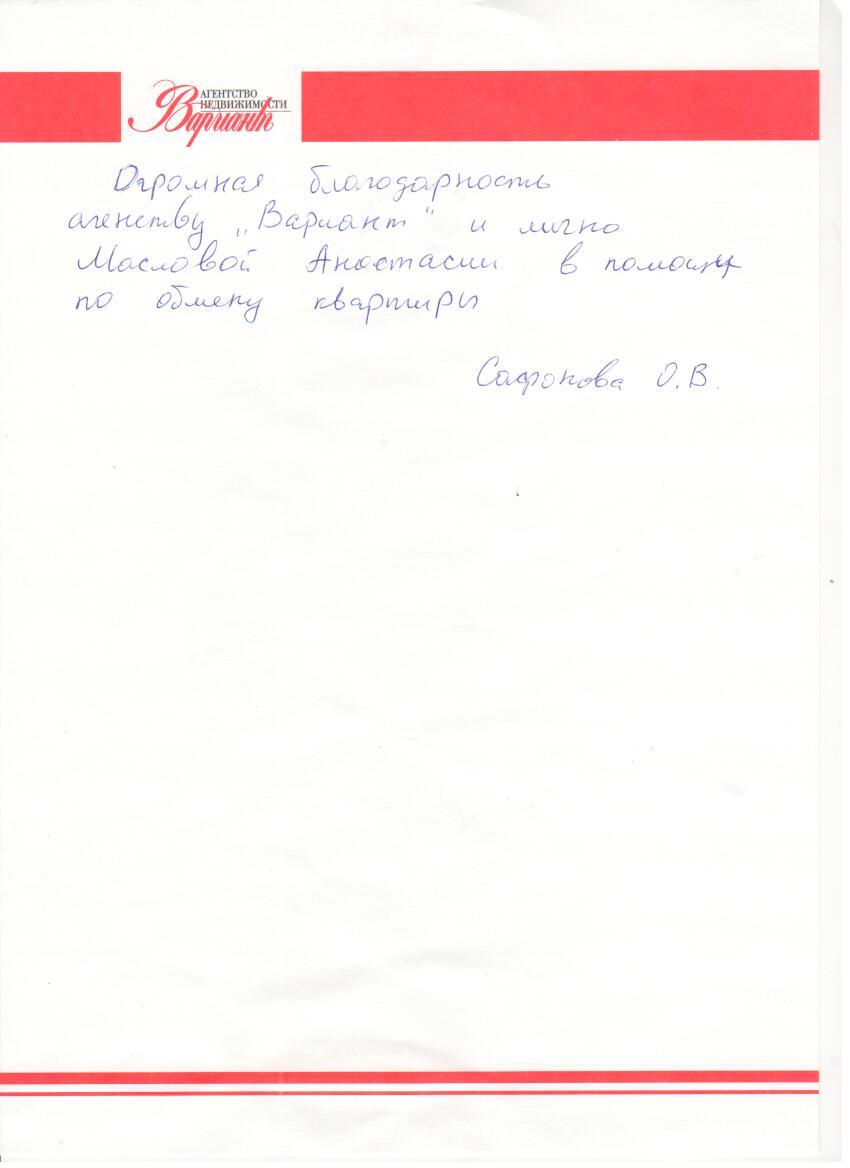 АГЕНТСТВО
НЕДВИЖИМОСТИ
Вариантъ
Огромная благодарность
агенству „Вариант“ и лично
Масловой Анастасии в помощи
по обмену квартиры
Сафонова О.В.